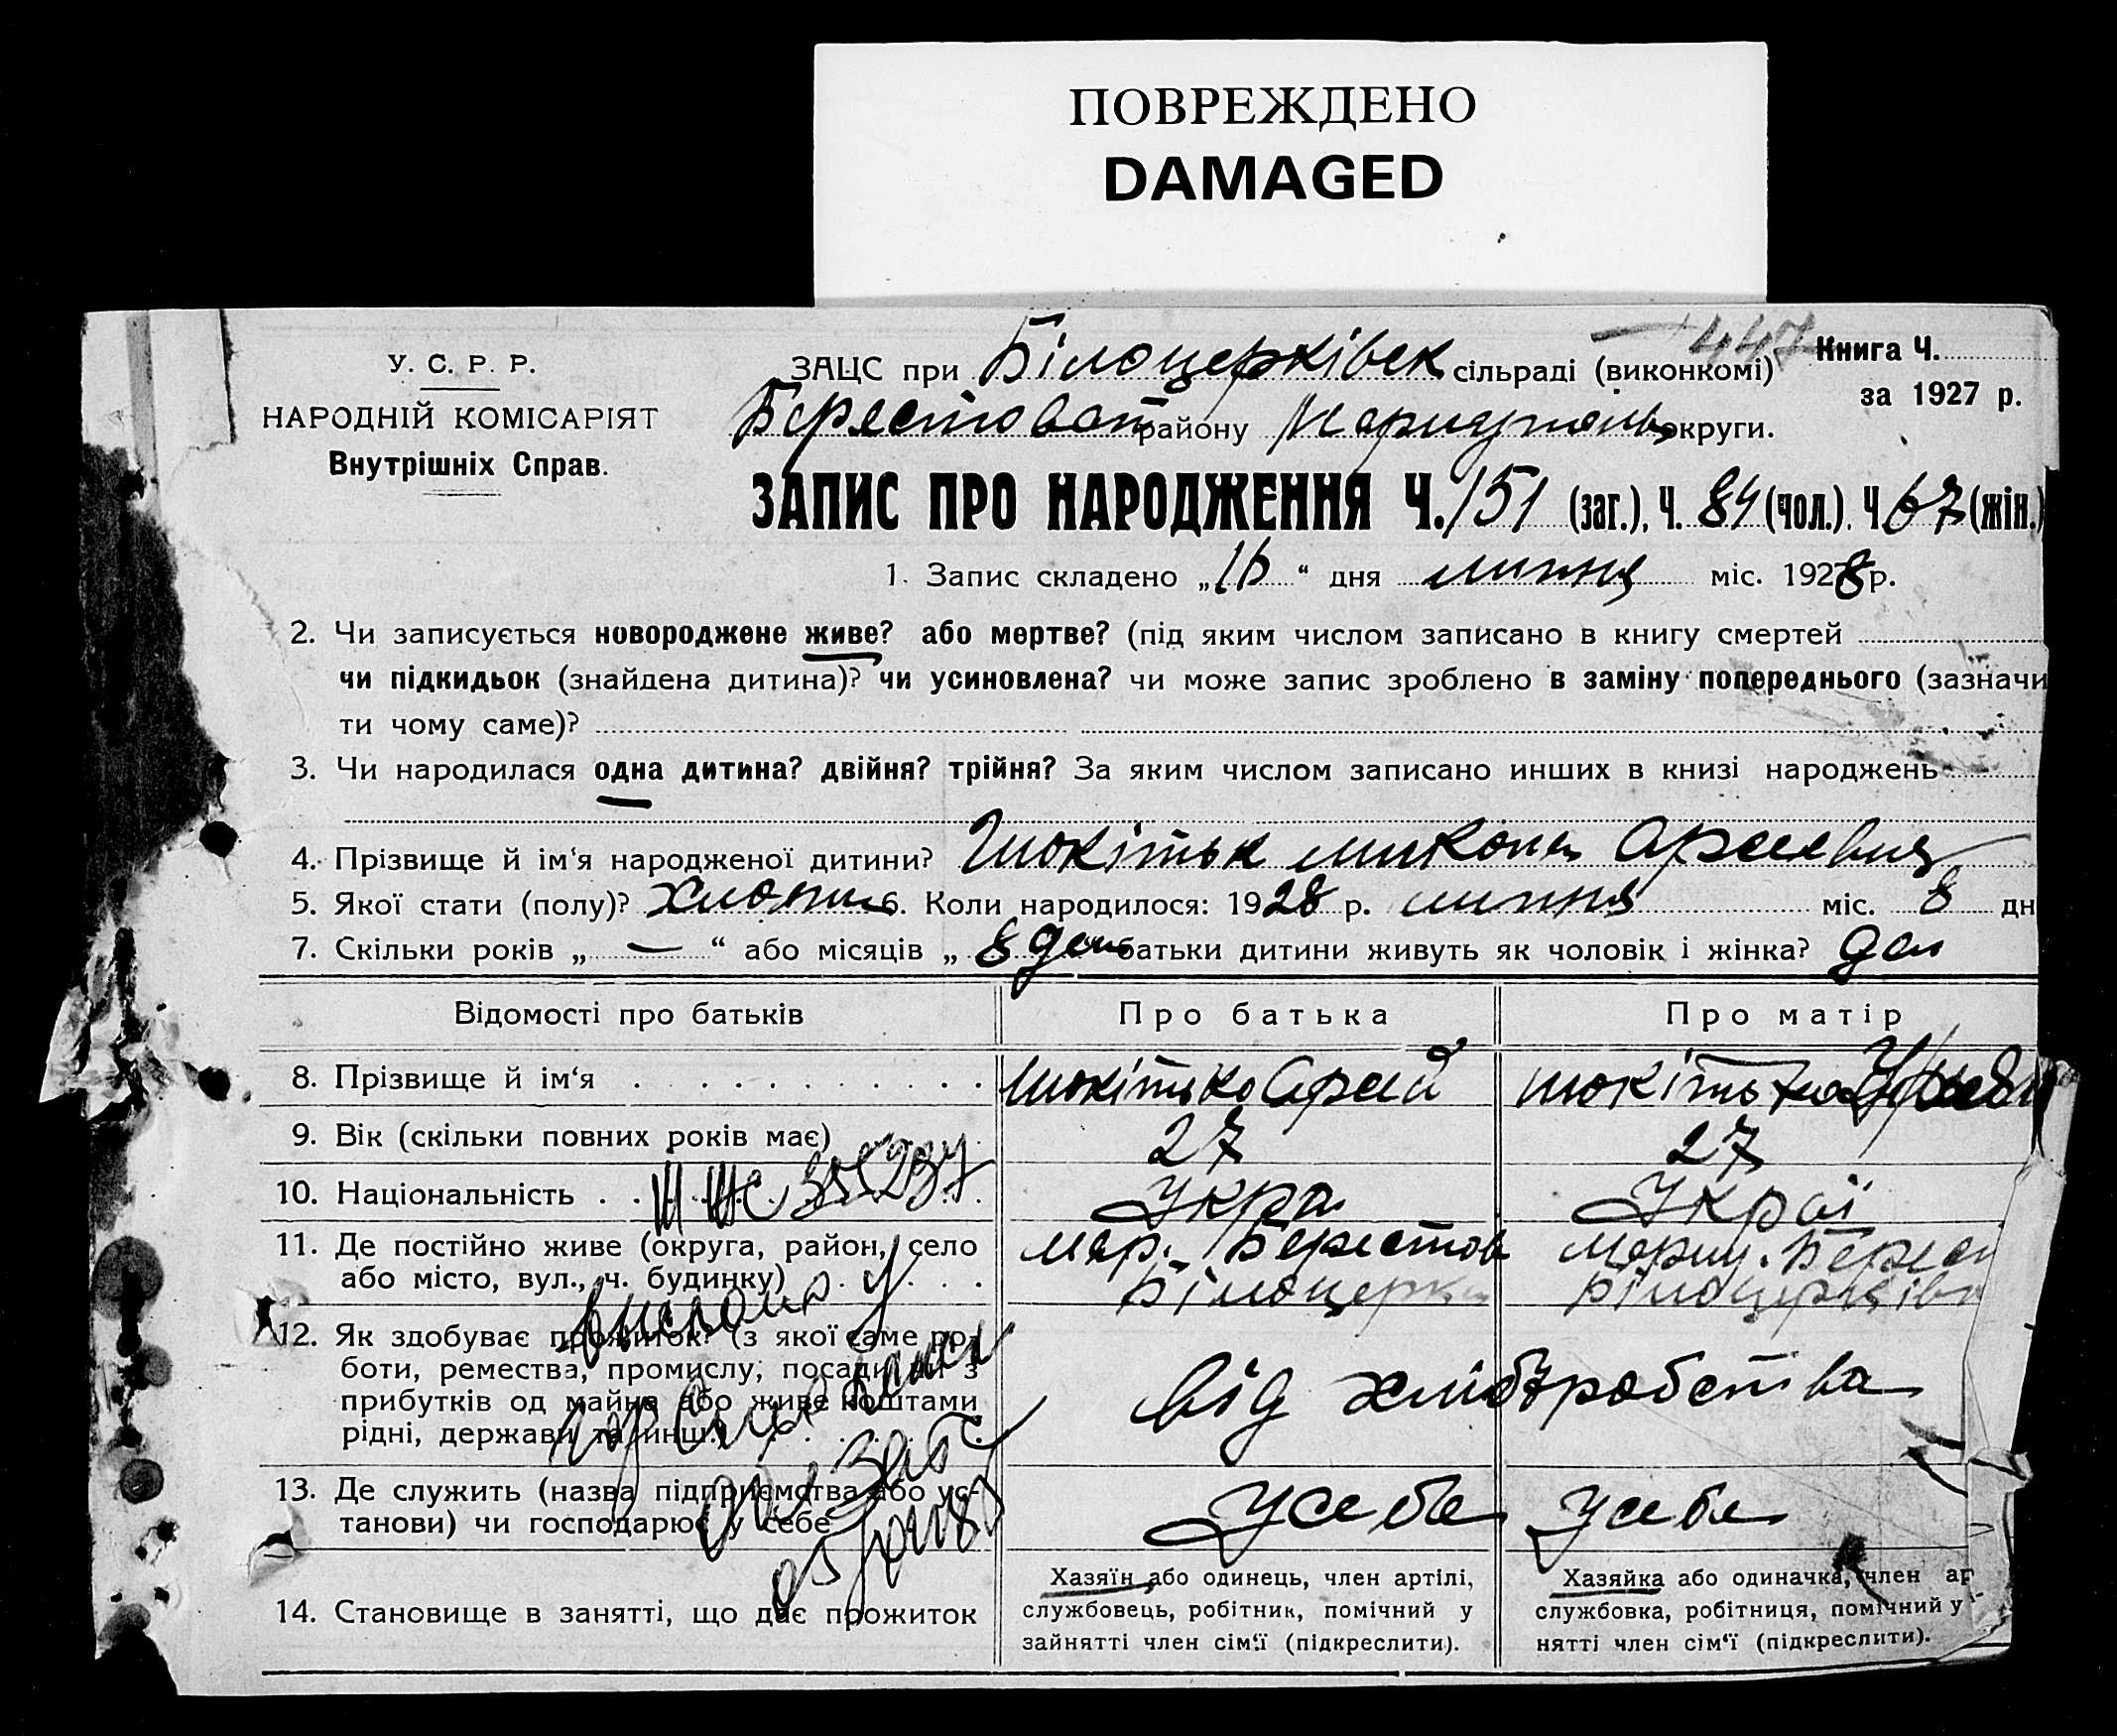 ПОВРЕЖДЕНО
DAMAGED
447
У. С. Р. Р.
НАРОДНІЙ КОМІСАРІЯТ
Внутрішніх Справ.
ЗАЦС при Білоцерківск сільраді (виконкомі)
Книга Ч.
за 1927 р.
Берестоват району Маріупольс округи.
ЗАПИС ПРО НАРОДЖЕННЯ Ч. 151 (заг.), Ч. 84 (чол.). Ч. 67 (жін.)
1. Запис складено „16“ дня липня міс. 1928 р.
2. Чи записується новороджене живе? або мертве? (під яким числом записано в книгу смертей
чи підкидьок (знайдена дитина)? чи усиновлена? чи може запис зроблено в заміну попереднього (зазначи
ти чому саме)?
3. Чи народилася одна дитина? двійня? трійня? За яким числом записано инших в книзі народжень
4. Прізвище й ім‘я народженої дитини? Микола
5. Якої стати (полу)? хлопець 6. Коли народилося: 1928 р. липня міс. 8 дн
7. Скільки років „ — “ або місяців „ 8 ден батьки дитини живуть як чоловік і жінка? да
Відомості про батьків
Про батька
Про матір
8. Прізвище й ім‘я
9. Вік (скільки повних років має) 27 27
10. Національність Укра Украї
11. Де постійно живе (округа, район, село
або місто, вул., ч. будинку)
Мар. Берестов
Білоцерк
Маріу. Берес
Білоцерків
12. Як здобуває прожиток? (з якої саме ро-
боти, ремества, промислу, посади чи з
прибутків од майна або живе коштами
рідні, держави та инш.)
від хліборобства
13. Де служить (назва підприємства або ус-
танови) чи господарює у себе
у себе у себе
14. Становище в занятті, що дає прожиток
Хазяїн або одинець, член артілі,
службовець, робітник, помічний у
зайнятті член сім‘ї (підкреслити).
Хазяйка або одиначка, член ар
службовка, робітниця, помічний у
нятті член сім‘ї (підкреслити).